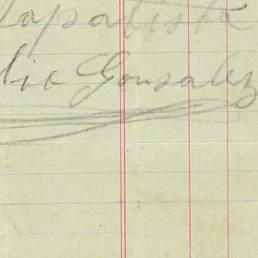 lapatista
lio Gonzalez